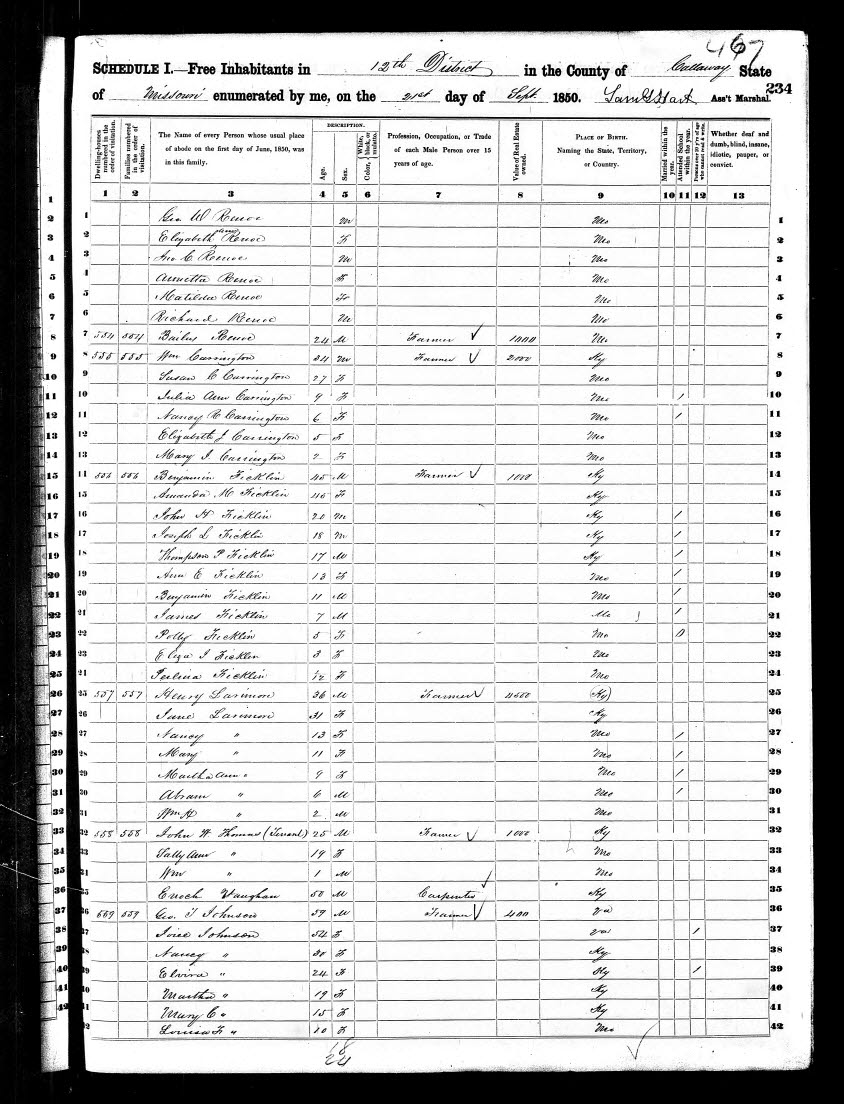 467
SCHEDULE I.—Free Inhabitants in 12th District in the County of Callaway State
of Missouri enumerated by me, on the 21st day of Sept. 1850. Saml G Hart Ass't Marshal. 234
Dwelling-houses numbered in the order of visitation.
Families numbered in the order of visitation.
The Name of every Person whose usual place of abode on the first day of June, 1850, was in this family.
DESCRIPTION.
Age.
Sex.
Color, White, black, or mulatto.
Profession, Occupation, or Trade of each Male Person over 15 years of age.
Value of Real Estate owned.
PLACE OF BIRTH. Naming the State, Territory, or Country.
Married within the year.
Attended School within the year.
Persons over 20 y'rs of age who cannot read & write.
Whether deaf and dumb, blind, insane, idiotic, pauper, or convict.
1 2 3 4 5 6 7 8 9 10 11 12 13
1 Geo W Renoe M Mo 1
2 Elizabeth Ann Renoe F Mo 2
3 Jno C Renoe M Mo 3
4 Annetta Renoe F Mo 4
5 Matilda Renoe F Mo 5
6 Richard Renoe M Mo 6
7 554 554 Renoe 24 M Farmer 1000 Mo 7
8 555 555 Wm Carrington 34 M Farmer 2000 Ky 8
9 Susan C Carrington 27 F Mo 9
10 Julia Ann Carrington 9 F Mo / 10
11 Nancy R Carrington 6 F Mo / 11
12 Elizabeth J Carrington 5 F Mo 12
13 Mary I Carrington 2 F Mo 13
14 556 556 Benjamin Ficklin 45 M Farmer 1000 Ky 14
15 Amanda M Ficklin F Ky 15
16 John H Ficklin 20 M Ky / 16
17 Joseph L Ficklin 18 M Ky / 17
18 Thompson P Ficklin 17 M Ky / 18
19 Ann E Ficklin 13 F Mo / 19
20 Benjamin Ficklin 11 M Mo / 20
21 James Ficklin 7 M Mo / 21
22 Polly Ficklin 5 F Mo 22
23 Eliza I Ficklin 3 F Mo 23
24 Ficklin F Mo 24
25 557 557 Henry Larimon 36 M Farmer Ky 25
26 Jane Larimon 31 F Ky 26
27 Nancy " 13 F Mo / 27
28 Mary " 11 F Mo / 28
29 Martha Ann " 9 F Mo / 29
30 Abram " 6 M Mo / 30
31 Wm H " 2 M Mo 31
32 558 558 John W Thomas (Tenant) 25 M Farmer 1000 Ky 32
33 Sally Ann " 19 F Mo 33
34 Wm " 1 M Mo 34
35 Enoch Vaughan 50 M Carpenter Ky 35
36 559 559 Geo. T Johnson 59 M Farmer 400 Va 36
37 Johnson 54 F Va / 37
38 Nancy " 30 F Ky 38
39 Elvira " 24 F Ky / 39
40 Martha " 19 F Ky 40
41 Mary C " 15 F Ky 41
42 Louisa F " 10 F Mo 42
18
24